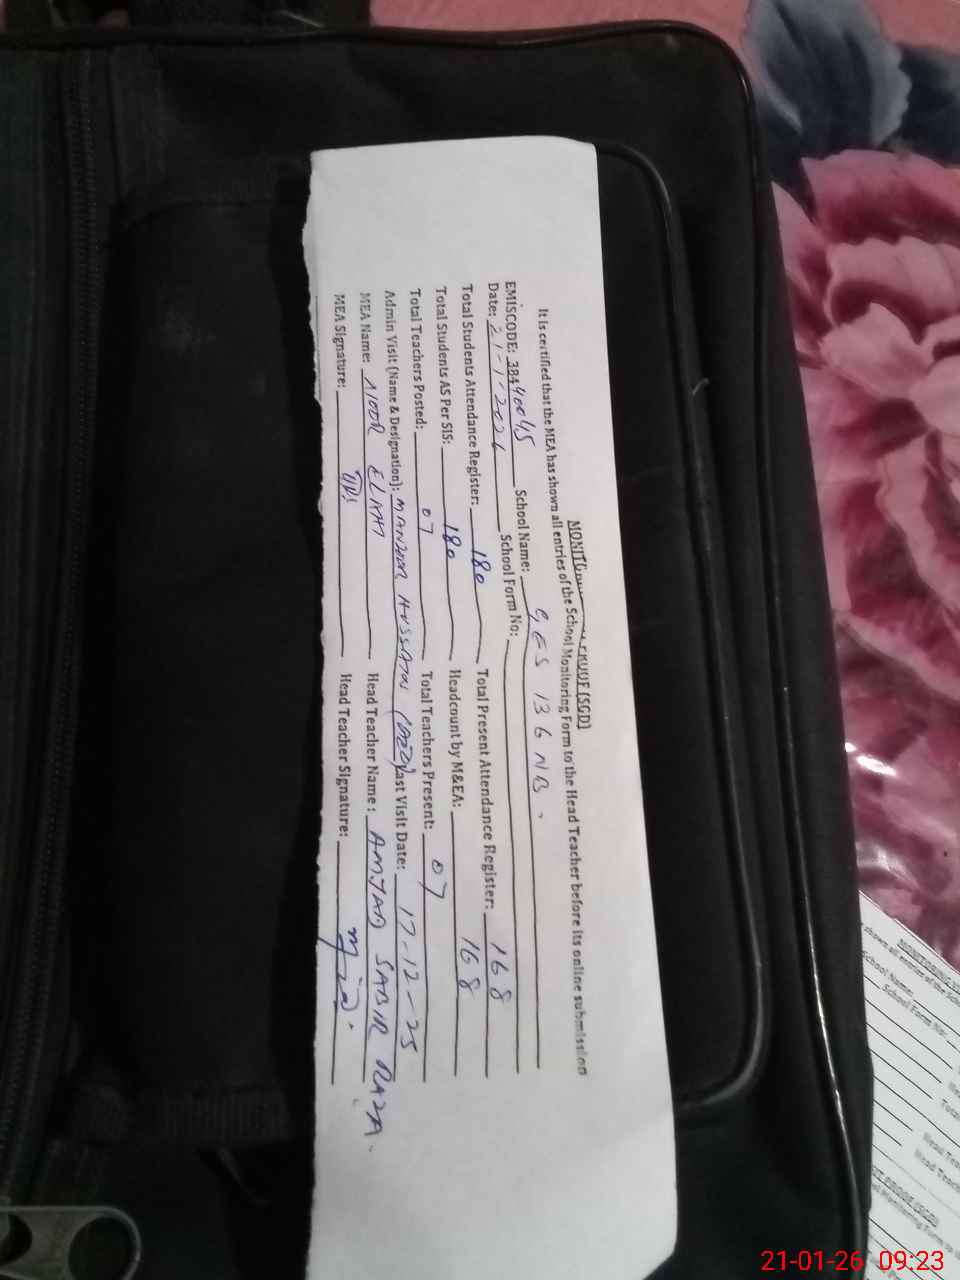 PROOF (SGD)
It is certified that the MEA has shown all entries of the School Monitoring Form to the Head Teacher before its online submission
EMISCODE: 38440045 School Name: GES 136 NB.
Date: 21-1-2026 School Form No:
Total Students Attendance Register: 180 Total Present Attendance Register: 168
Total Students AS Per SIS: 180 Headcount by M&EA: 168
Total Teachers Posted: 07 Total Teachers Present: 07
Admin Visit (Name & Designation): Last Visit Date: 17-12-25
MEA Name: ELAHI Head Teacher Name: AMJAD SABIR RAZA.
MEA Signature: Head Teacher Signature:
School Name:
School Form No:
21-01-26 09:23